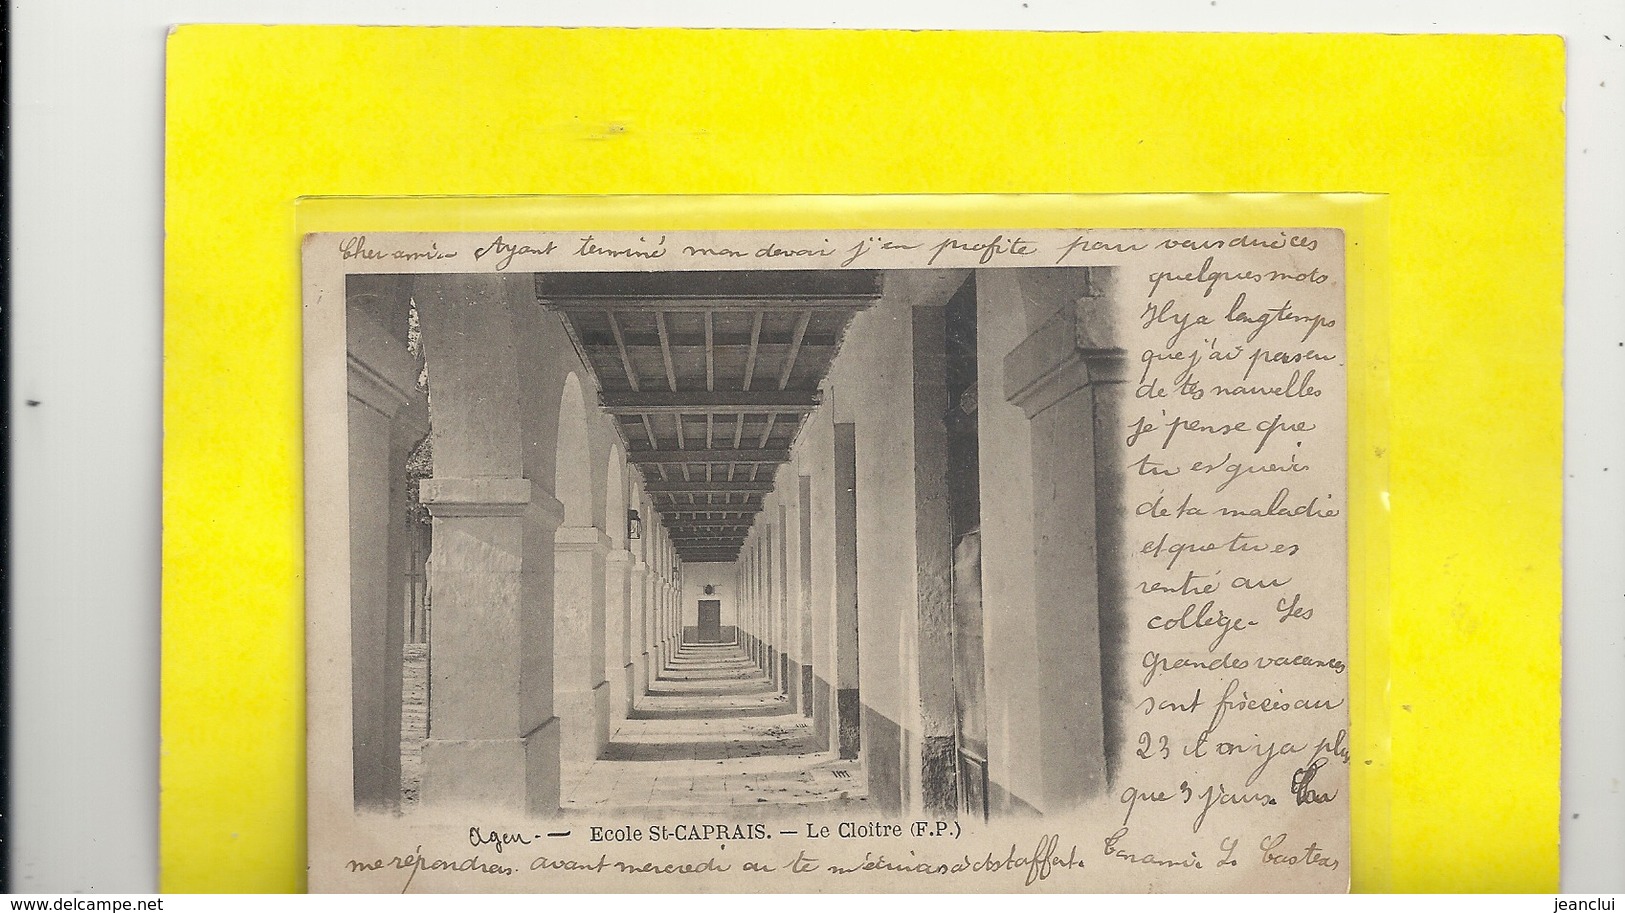 Cher ami - Ayant terminé mon devoir j'en profite pour vous dire ces
quelques mots
Il y a longtemps
que j'ai pas eu
de tes nouvelles
je pense que
tu es guéri
de ta maladie
et que tu es
rentré au
collège - Les
grandes vacances
sont fixées au
23 il n'y a plus
que 3 jours. Tu
Agen - — Ecole St-CAPRAIS. — Le Cloître (F.P.)
me répondras avant mercredi ou tu m'écriras à Astaffort. Ton ami L.
delcampe.net
jeanclui